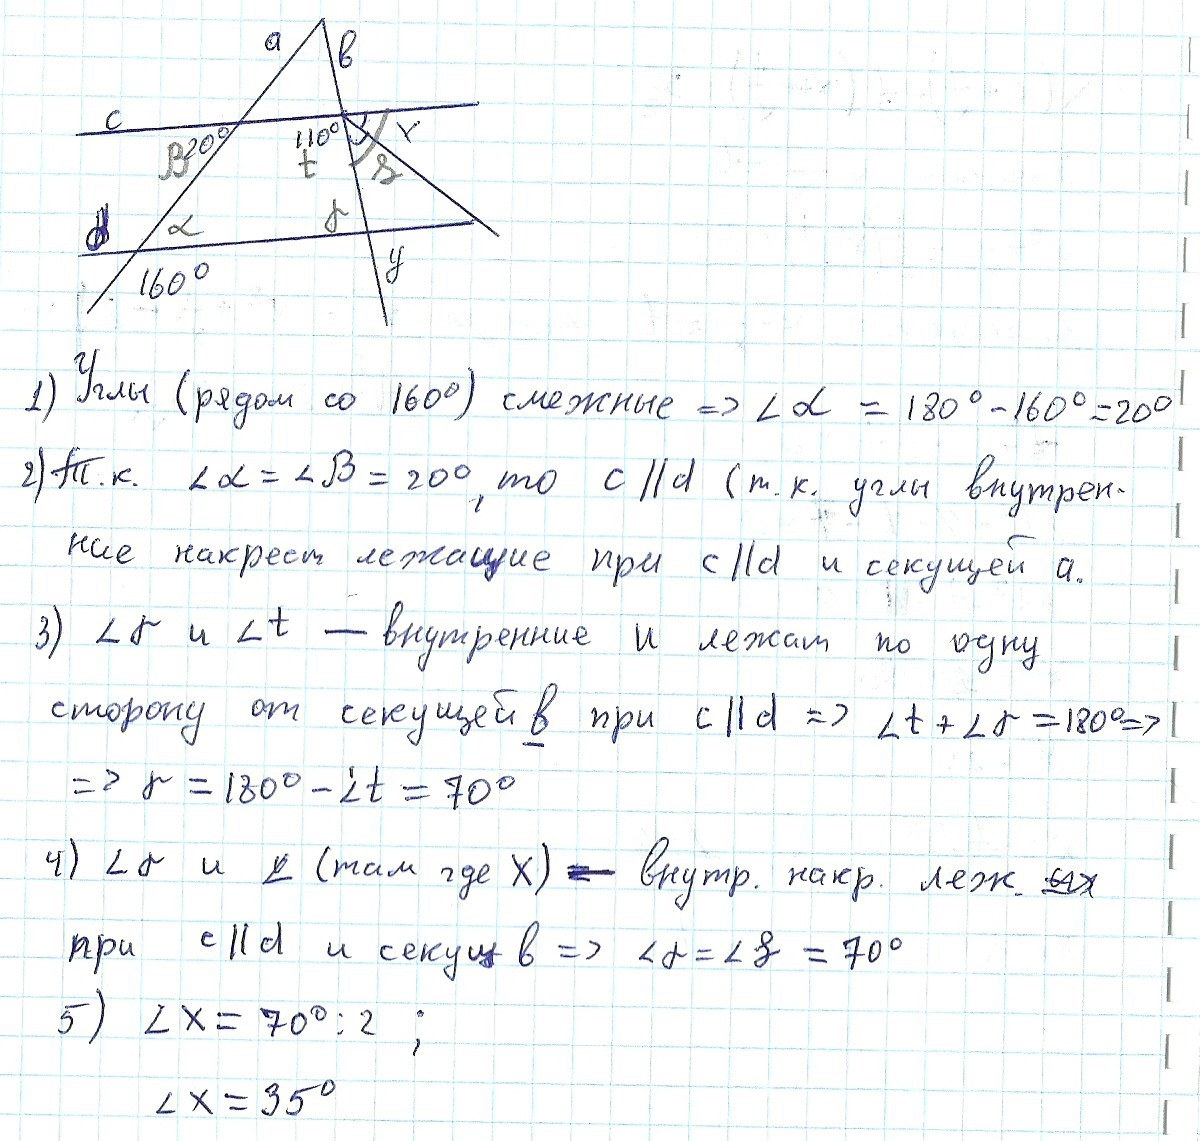 a
в
c
β 20°
110°
x
t
γ
d
α
160°
y
1) Углы (рядом со 160°) смежные => ∠α = 180° - 160° = 20°
2) Т.к. ∠α = ∠β = 20°, то c || d (т.к. углы внутрен-
ние накрест лежащие при c || d и секущей a.
3) ∠γ и ∠t — внутренние и лежат по одну
сторону от секущей в при c || d => ∠t + ∠γ = 180° =>
=> γ = 180° - ∠t = 70°
4) ∠γ и ∠ (там где X) — внутр. накр. леж.
при c || d и секущ в => ∠γ = ∠ = 70°
5) ∠X = 70° : 2 ;
∠X = 35°